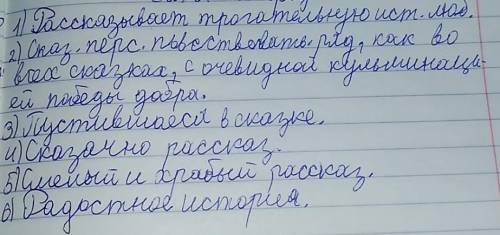 1) Рассказывает трогательную ист. люб.
2) Сказ. перс. повествовать ряд, как во
всех сказках, с очевидной кульминаци-
ей победы добра.
3) Пустившаеся в сказке.
4) Сказачно рассказ.
5) Смелый и храбый рассказ.
6) Радостное история.